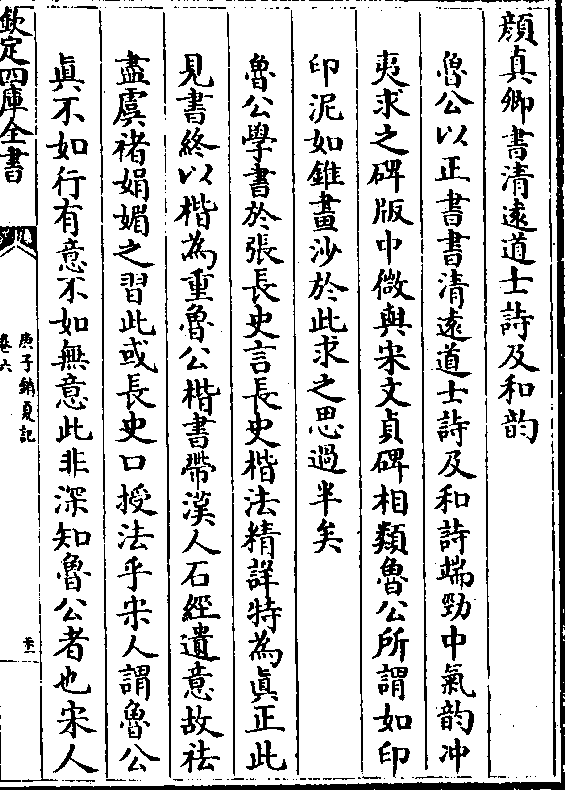 顔真卿書清逺道士詩及和韵
魯公以正書書清逺道士詩及和詩端勁中氣韵冲
夷求之碑版中微與宋文貞碑相類魯公所謂如印
印泥如錐畫沙於此求之思過半矣
魯公學書於張長史言長史楷法精詳特為真正此
見書終以楷為重魯公楷書帶漢人石經遺意故祛
盡虞褚娟媚之習此或長史口授法乎宋人謂魯公
眞不如行有意不如無意此非深知魯公者也宋人
欽定四庫全書
庚子銷夏記
卷六